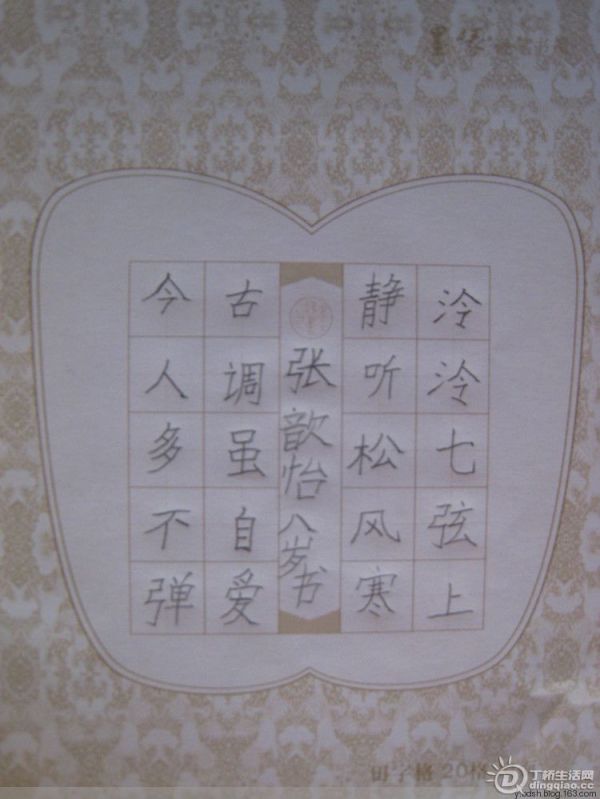 泠泠七弦上
静听松风寒
张歆怡八岁书
古调虽自爱
今人多不弹
田字格20格
丁桥生活网
dingqiao.cc
ylxdsh.blog.163.com